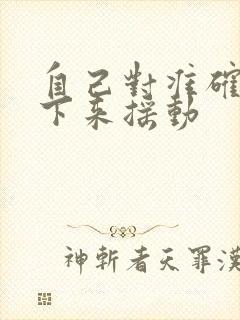 自己對准確
下来摇動
神斬者天罪漢